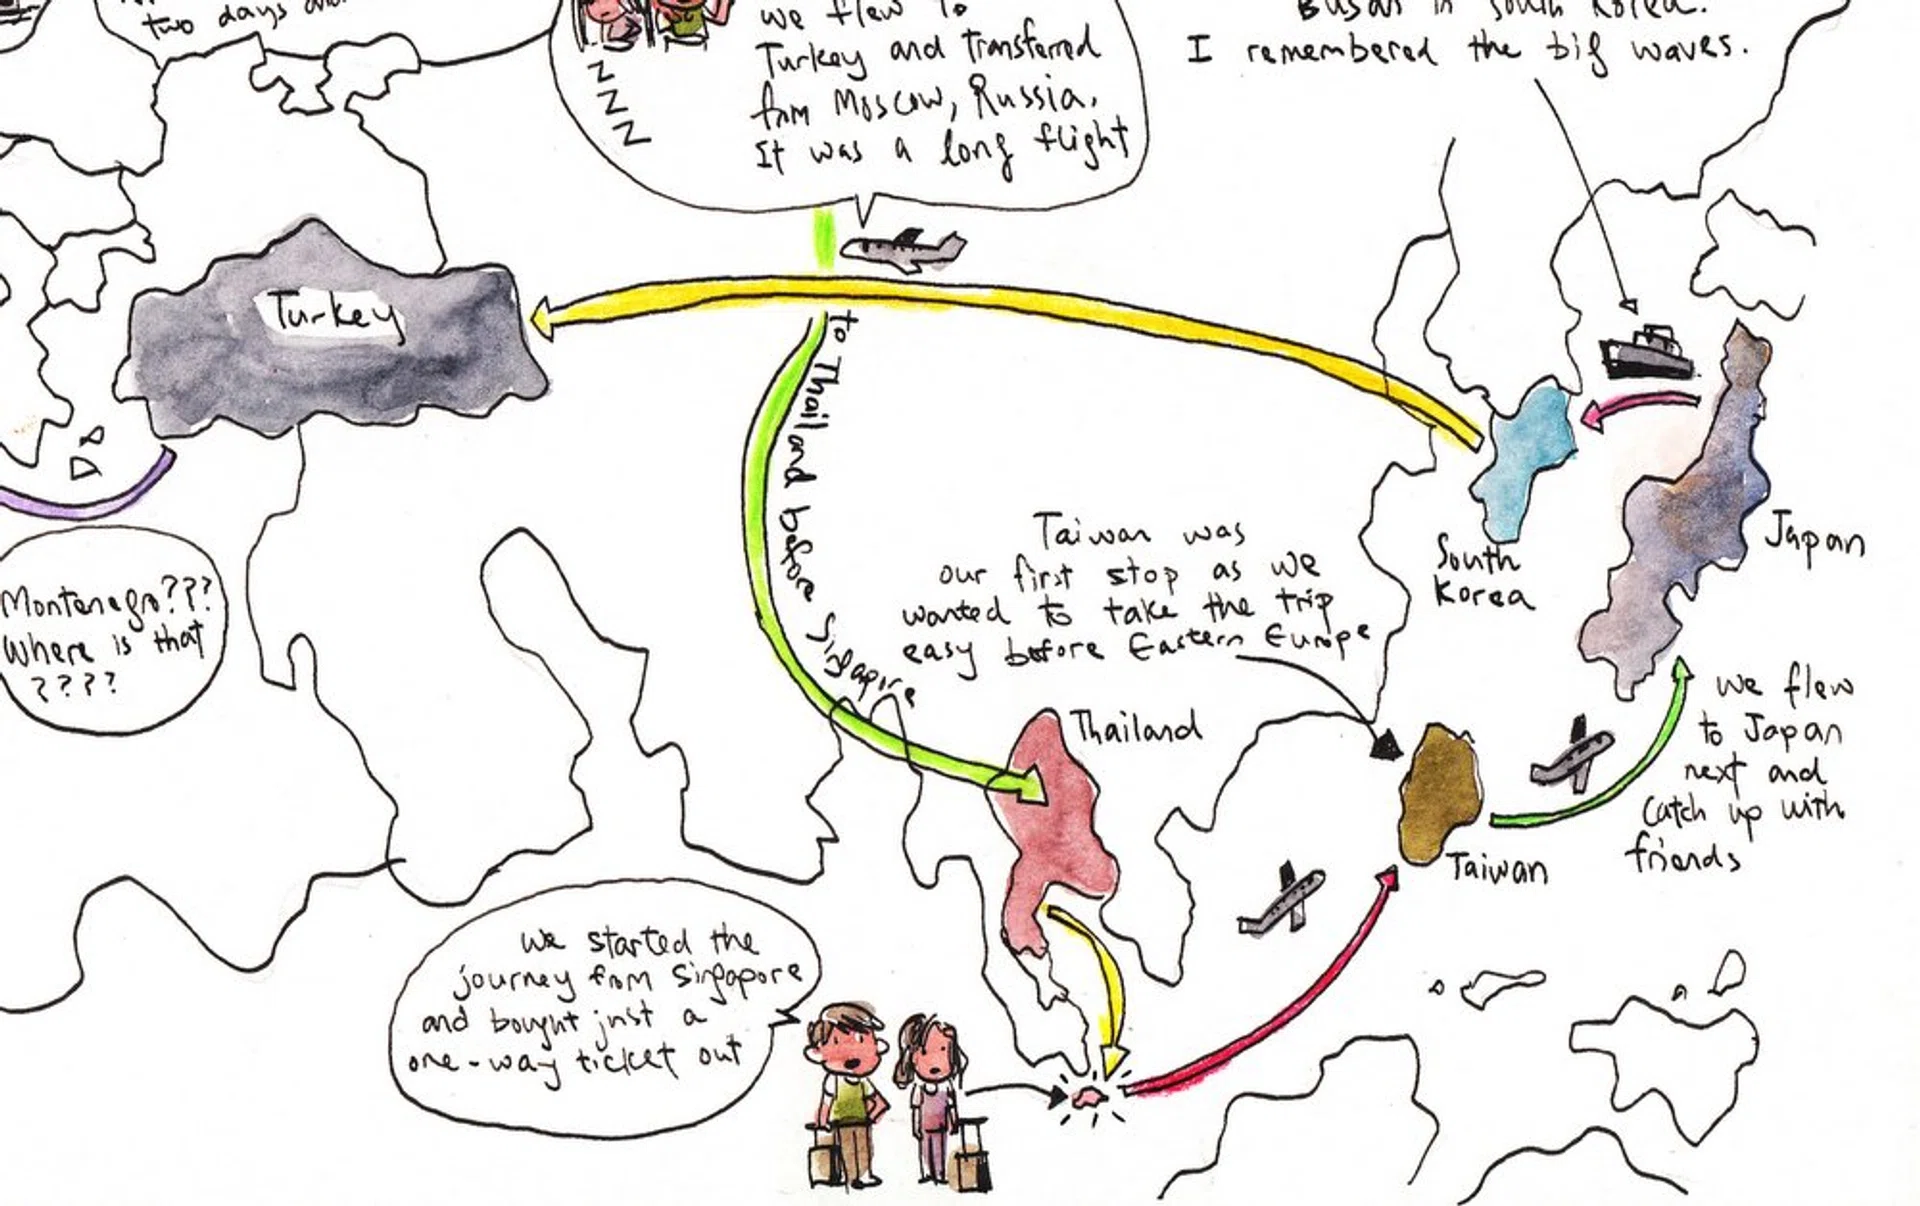 two days and
we flew to
Turkey and transferred
from Moscow, Russia.
It was a long flight
Z
Z
Z
Busan in South Korea.
I remembered the big waves.
Turkey
to Thailand before Singapore
Montenegro???
Where is that
????
Taiwan was
our first stop as we
wanted to take the trip
easy before Eastern Europe
South
Korea
Japan
Thailand
we flew
to Japan
next and
catch up with
friends
Taiwan
We started the
journey from Singapore
and bought just a
one-way ticket out